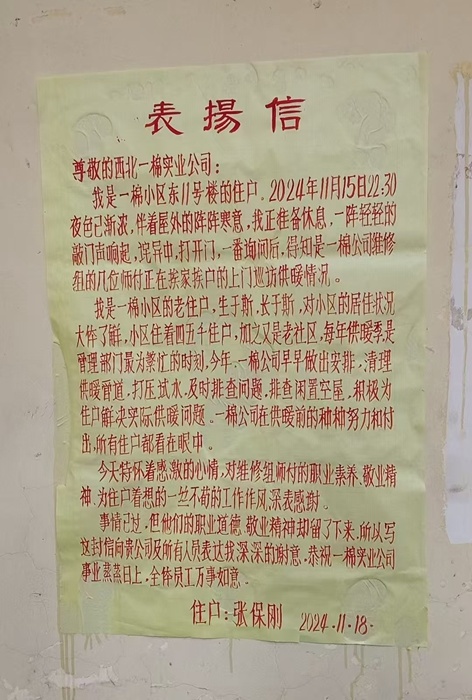 表揚信
尊敬的西北一棉实业公司：
我是一棉小区东11号楼的住户。2024年11月15日22:30
夜色已渐浓，伴着屋外的阵阵寒意，我正准备休息，一阵轻轻的
敲门声响起，诧异中，打开门，一番询问后，得知是一棉公司维修
组的几位师付正在挨家挨户的上门巡访供暖情况。
我是一棉小区的老住户，生于斯，长于斯，对小区的居住状况
大体了解，小区住着四五千住户，加之又是老社区，每年供暖季是
管理部门最为繁忙的时刻，今年，一棉公司早早做出安排，清理
供暖管道，打压试水，及时排查问题，排查闲置空屋，积极为
住户解决实际供暖问题。一棉公司在供暖前的种种努力和付
出，所有住户都看在眼中。
今天特怀着感激的心情，对维修组师付的职业素养、敬业精
神、为住户着想的一丝不苟的工作作风，深表感谢。
事情已过，但他们的职业道德、敬业精神却留了下来，所以写
这封信向贵公司及所有人员表达我深深的谢意，恭祝一棉实业公司
事业蒸蒸日上，全体员工万事如意。
住户：张保刚 2024.11.18.